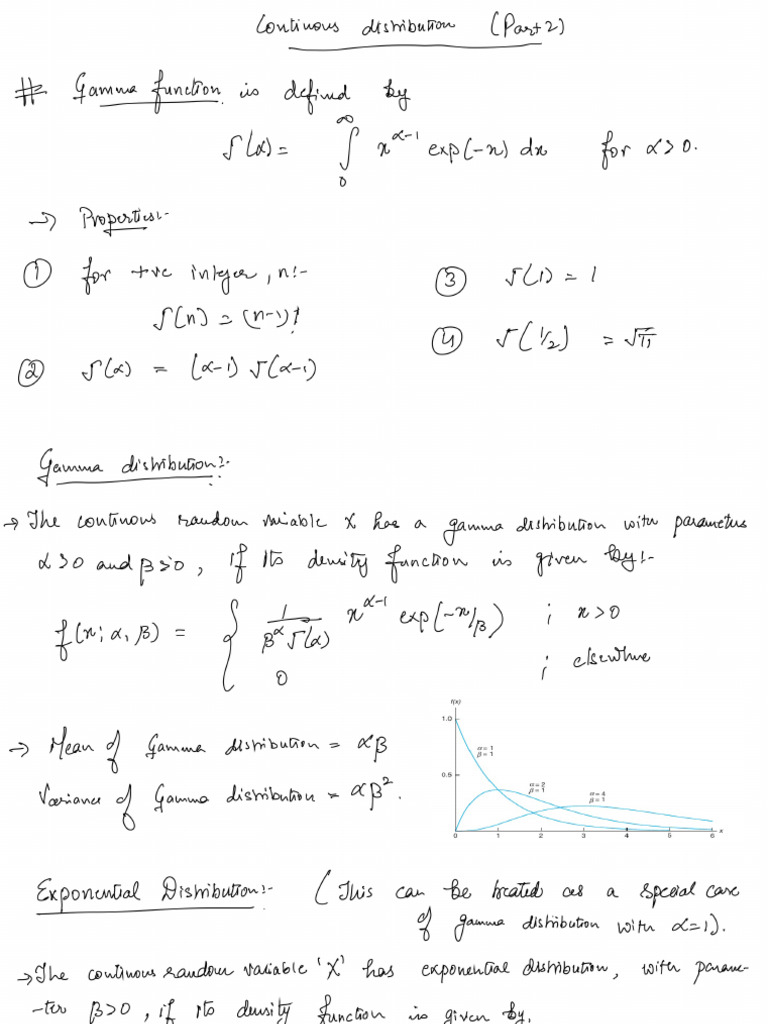 Continous distribution (Part 2)
# Gamma function is defined by
Γ(α) = ∫₀^∞ x^(α-1) exp(-x) dx for α > 0.
→ Properties:-
① for +ve integer, n:-
Γ(n) = (n-1)!
② Γ(α) = (α-1) Γ(α-1)
③ Γ(1) = 1
④ Γ(1/2) = √π
Gamma distribution:-
→ The continous random variable X has a gamma distribution with parameters
α>0 and β>0, if its density function is given by:-
f(x; α, β) = { 1/(β^α Γ(α)) x^(α-1) exp(-x/β) ; x>0
0 ; elsewhere
→ Mean of Gamma distribution = αβ
Variance of Gamma distribution = αβ².
f(x)
1.0
0.5
α = 1
β = 1
α = 2
β = 1
α = 4
β = 1
0 1 2 3 4 5 6 x
Exponential Distribution:- (This can be treated as a special case
of gamma distribution with α=1).
→ The continous random variable 'X' has exponential distribution, with parame-
-ter β>0, if its density function is given by,